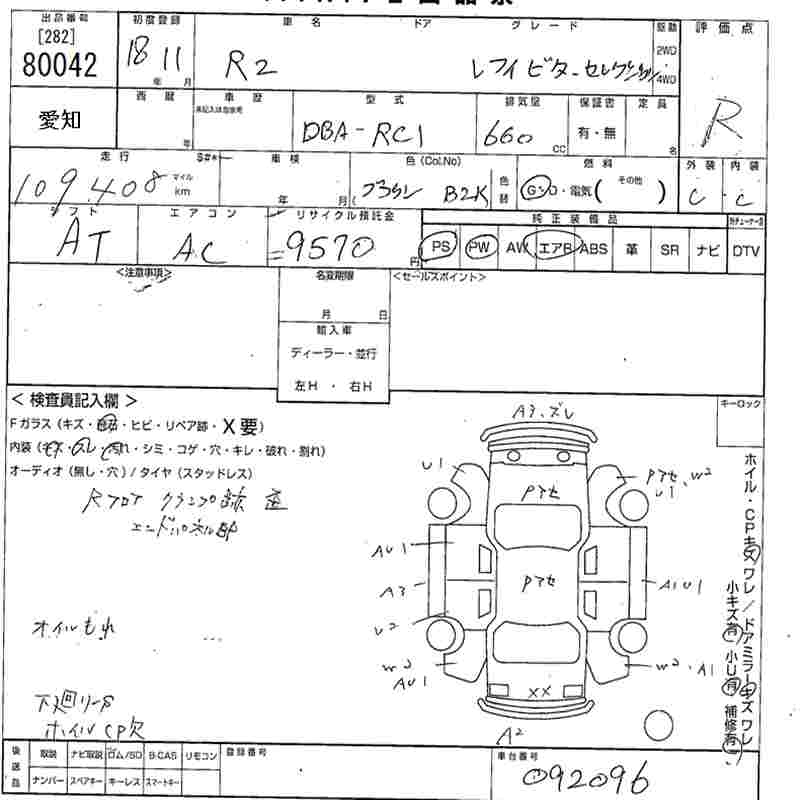 出品番号 初度登録 車名 ドア グレード 駆動 評価点
[282]
80042
18 11
年 月
R2
レフィ ビターセレクション
2WD
4WD
R
愛知
西暦
年
車歴
未記入は自家用
型式
DBA-RC1
排気量
660
CC
保証書
有・無
定員
名
走行 S#*
109,408
マイル
km
車検
年 月
色(Col.No)
ブラウン B2K
色替
燃料
G・D・電気(その他)
外装 内装
C C
シフト
AT
エアコン
AC
リサイクル預託金
9570
円
純正装備品
PS PW AW エアB ABS 革 SR ナビ DTV
<注意事項>
名変期限
月 日
<セールスポイント>
輸入車
ディーラー・並行
左H・右H
<検査員記入欄>
キーロック
Fガラス(キズ・飛石・ヒビ・リペア跡・X要)
内装(キズ・スレ・汚れ・シミ・コゲ・穴・キレ・破れ・割れ)
オーディオ(無し・穴)/タイヤ(スタッドレス)
Rフロア クランプ跡 歪
エンドパネル部
オイルもれ
下廻リーサ
ホイルCP欠
A3.ズレ
U1
Pアセ
Pアセ、W2
U1
AU1
Pアセ
A3
A1U1
U2
W2
AU1
W2、A1
XX
A2
ホイル・CPキズワレ/ドアミラーキズワレ
小キズ有 小U有 補修有
後送品
取説 ナビ取説 ロム/SD B-CAS リモコン
ナンバー スペアキー キーレス スマートキー
登録番号
車台番号
092096